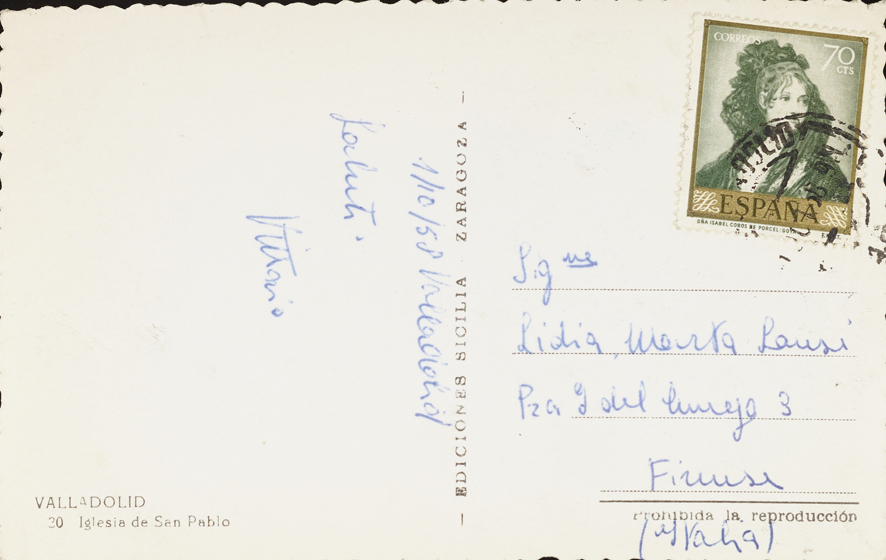 CORREOS
70
CTS
ESPAÑA
DÑA ISABEL COBOS DE PORCEL: GOYA
1/10/58 Valladolid
Saluti
Vittorio
EDICIONES SICILIA ZARAGOZA
Sig.ne
Lidia, Marta
Pza del 3
Firenze
(Italia)
VALLADOLID
30 Iglesia de San Pablo
Prohibida la reproducción